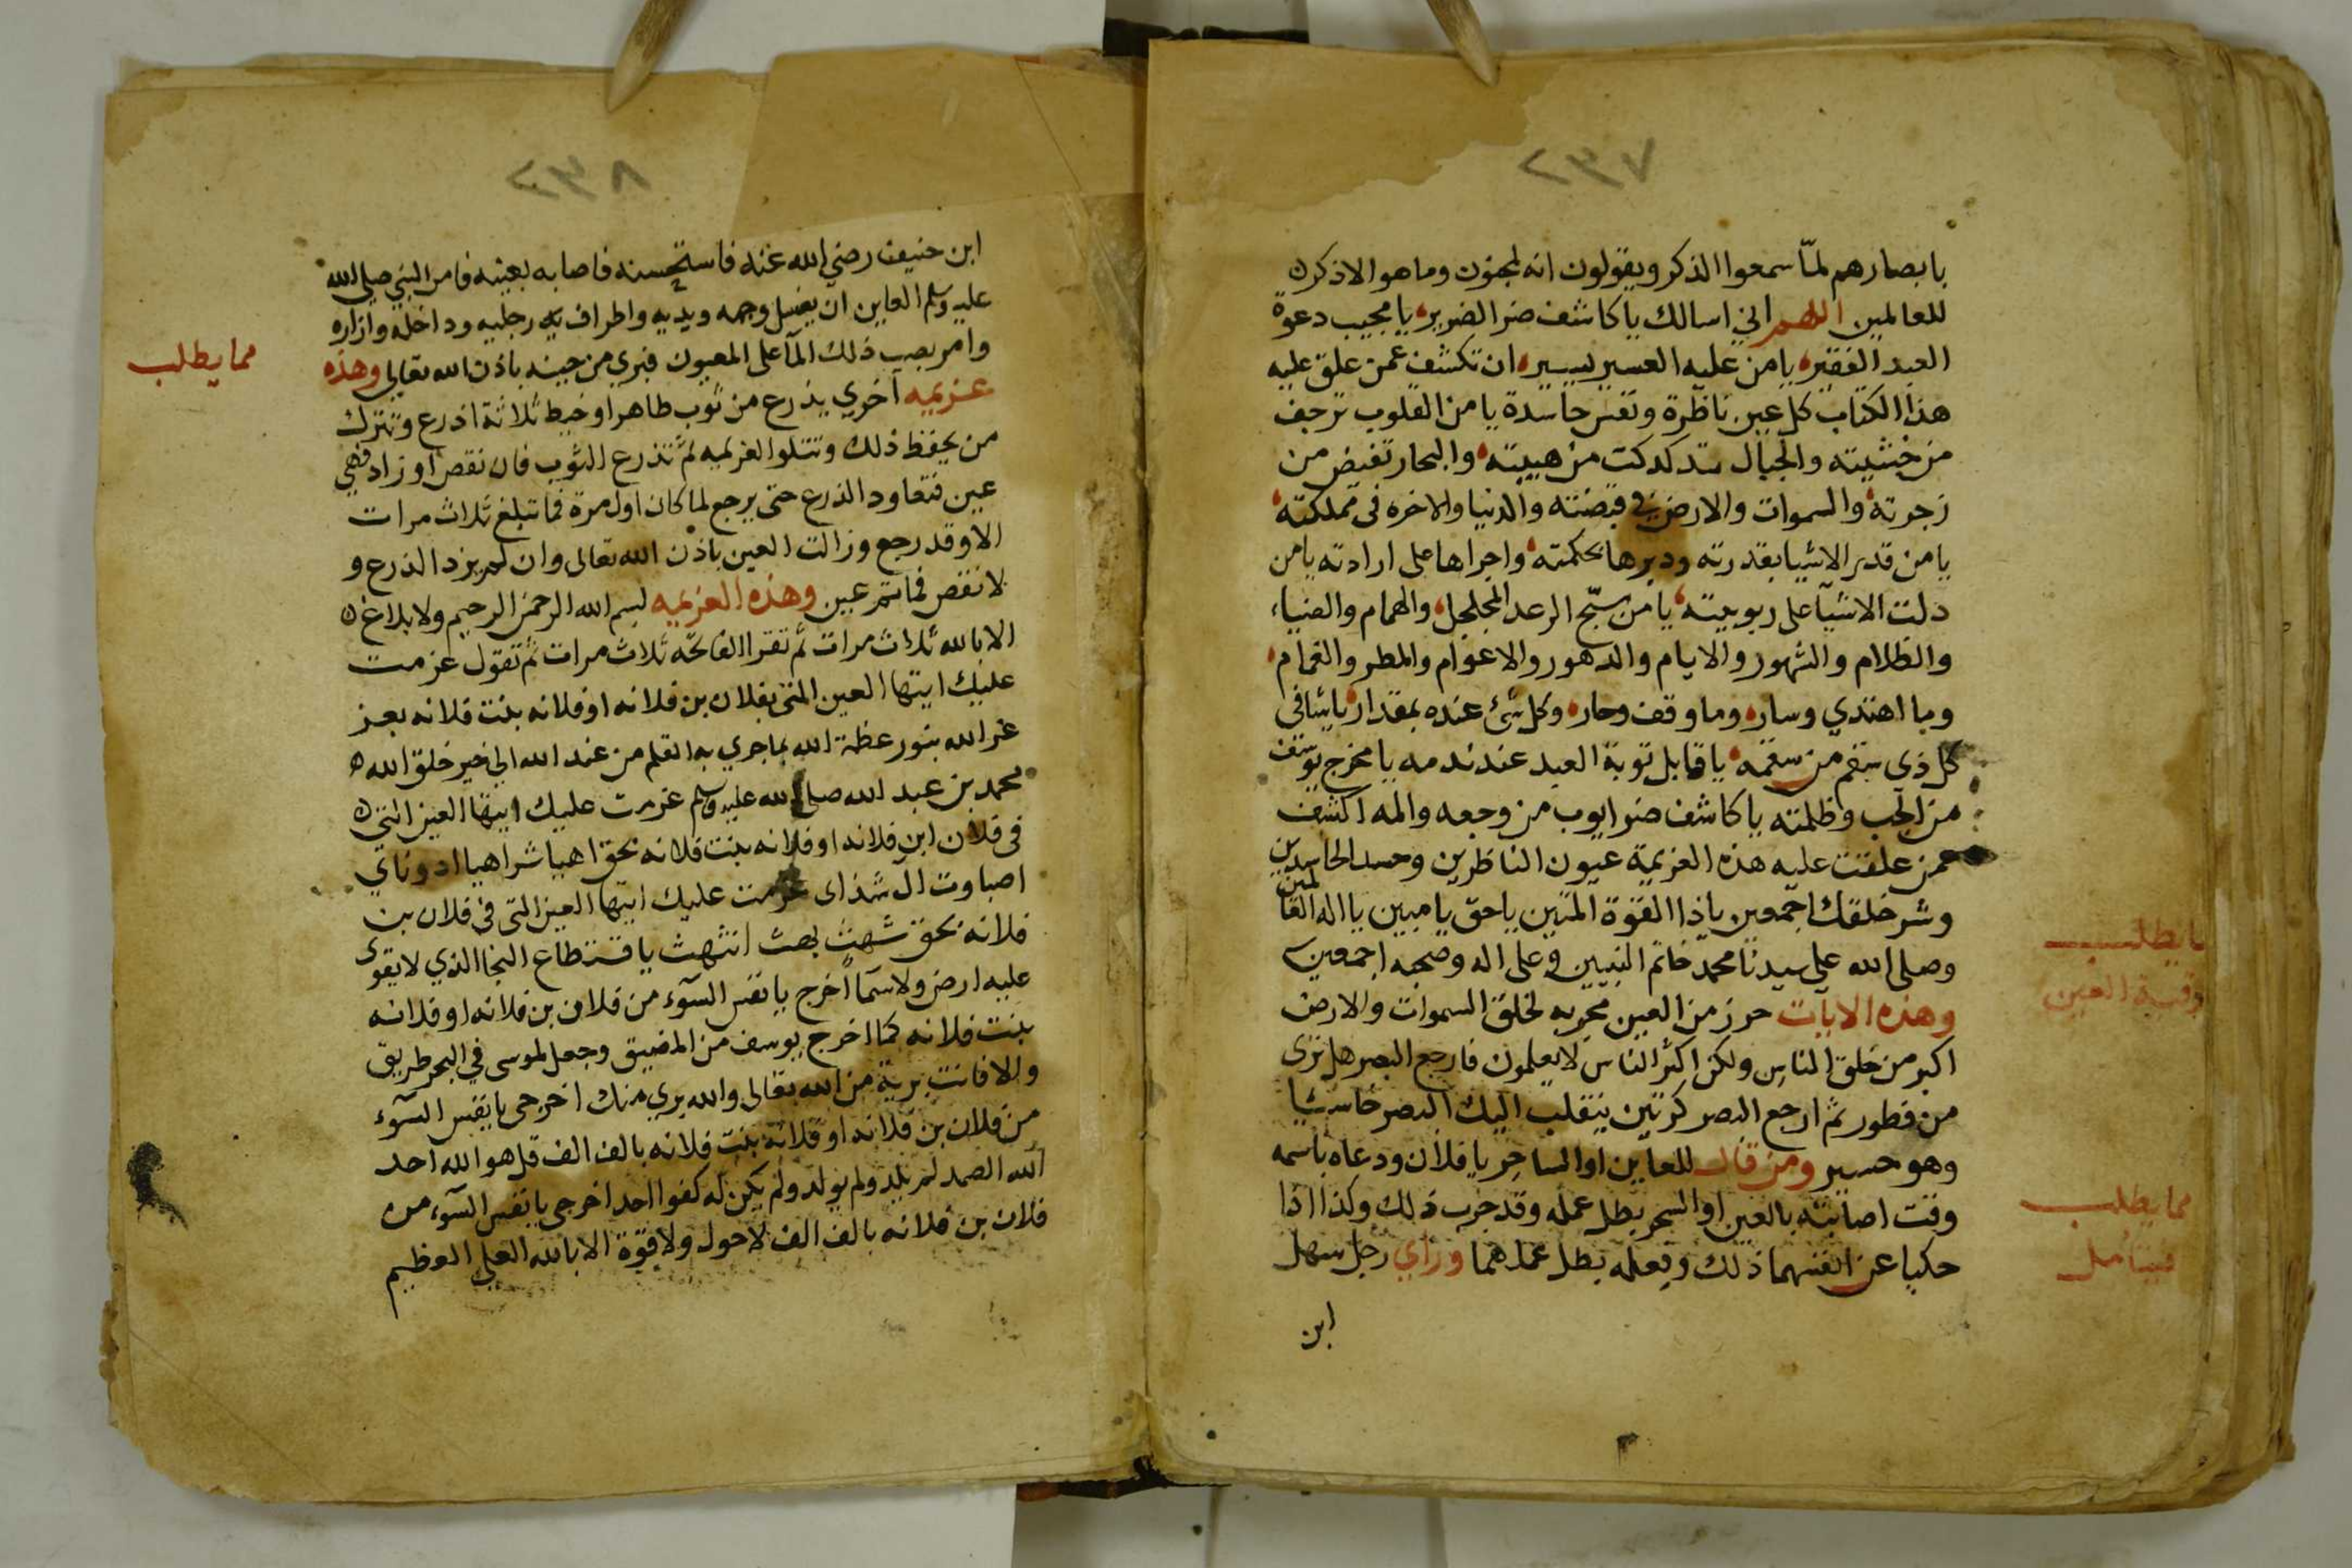 ٧٣٢
بابصارهم لمّا سمعوا الذكر ويقولون انه لمجنون وما هو الا ذكر
للعالمين اللهم اني اسالك يا كاشف ضر الضرير يا مجيب دعوة
العبد الفقير يا من عليه العسير يسير ان تكشف عمن علق عليه
هذا الكتاب كل عين ناظرة ونفس حاسدة يا من القلوب ترجف
من خشيته والجبال تدكدكت من هيبته والبحار تفيض من
زجرته والسموات والارض في قبضته والدنيا والاخره في مملكته
يا من قدر الاشيا بقدرته ودبرها بحكمته واجراها على ارادته يا من
دلت الاشيآ على ربوبيته يا من سبّح الرعد المجلجل والهمام والضياء
والظلام والشهور والايام والدهور والاعوام والمطر والغمام
وما اهتدي وسار وما وقف وحار وكل شئ عنده بمقدار يا شافي
كل ذي سقم من سقمه يا قابل توبة العبد عند ندمه يا مخرج يوسف
من الجب وظلمته يا كاشف ضر ايوب من وجعه والمه اكشف
عمن علقت عليه هذه العزيمة عيون الناظرين وحسد الحاسدين
وشر خلقك اجمعين ياذا القوة المتين ياحق يا مبين يا اله العالمين
وصلى الله على سيدنا محمد خاتم النبيين وعلى اله وصحبه اجمعين
وهذه الايات حرز من العين مجربه لخلق السموات والارض
اكبر من خلق الناس ولكن اكثر الناس لا يعلمون فارجع البصر هل ترى
من فطور ثم ارجع البصر كرتين ينقلب اليك البصر خاسئا
وهو حسير ومن قال للعاين او الساحر يا فلان ودعاه باسمه
وقت اصابته بالعين او السحر بطل عمله وقد جرب ذلك وكذا اذا
حكيا عن انفسهما ذلك وفعله بطل عملهما وراي رجل سهل
ابن
ما يطلب
رقية العين
مما يطلب
فيتامل
٨٣٢
ابن حنيف رضي الله عنه فاستحسنه فاصابه بعينه فامر النبي صلى الله
عليه وسلم العاين ان يغسل وجهه ويديه واطراف رجليه وداخله وازاره
وامر بصب ذلك المآ على المعيون فبري من حينه باذن الله تعالى وهذه
عزيمه اخري يذرع من ثوب طاهر او خيط ثلاثة اذرع وتترك
من يحفظ ذلك وتتلوا العزيمه ثم تذرع الثوب فان نقص او زاد فهي
عين فتعاود الذرع حتى يرجع لما كان اول مرة فما تبلغ ثلاث مرات
الا وقد رجع وزالت العين باذن الله تعالى وان لم يزد الذرع و
لا نقص فما ثم عين وهذه العزيمه بسم الله الرحمن الرحيم ولا بلاغ
الا بالله ثلاث مرات ثم تقرا الفاتحه ثلاث مرات ثم تقول عزمت
عليك ايتها العين التي بفلان بن فلانه او فلانه بنت فلانه بعز
عز الله بنور عظمة الله بما جري به القلم من عند الله الي خير خلق الله
محمد بن عبد الله صلى الله عليه وسلم عزمت عليك ايتها العين التي
في فلان ابن فلانه او فلانه بنت فلانه بحق اهيا شراهيا ادوناي
اصباوت آل شداى عزمت عليك ايتها العين التي في فلان بن
فلانه بحق شهت بهت انتهت يا قنطاع النجا الذي لا يقوى
عليه ارض ولا سمآ اخرج يا نفس السوء من فلان بن فلانه او فلانه
بنت فلانه كما اخرج يوسف من المضيق وجعل لموسى في البحر طريق
والا فانت برية من الله تعالى والله بري منك اخرجي يا نفس السوء
من فلان بن فلانه او فلانه بنت فلانه بالف الف قل هو الله احد
الله الصمد لم يلد ولم يولد ولم يكن له كفوا احد اخرجي يا نفس السوء من
فلان بن فلانه بالف الف لا حول ولا قوة الا بالله العلي العظيم
مما يطلب